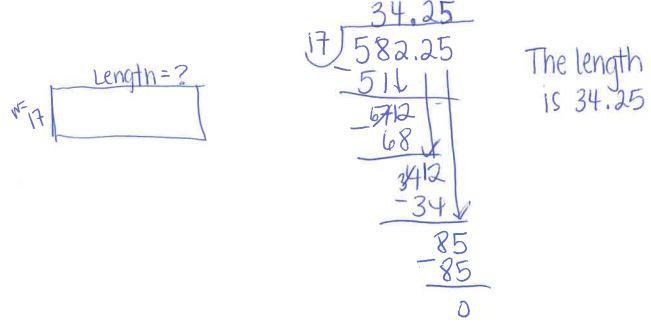 Length = ?
W= 17
34.25
17 582.25
- 51
712
- 68
412
- 34
85
- 85
0
The length
is 34.25